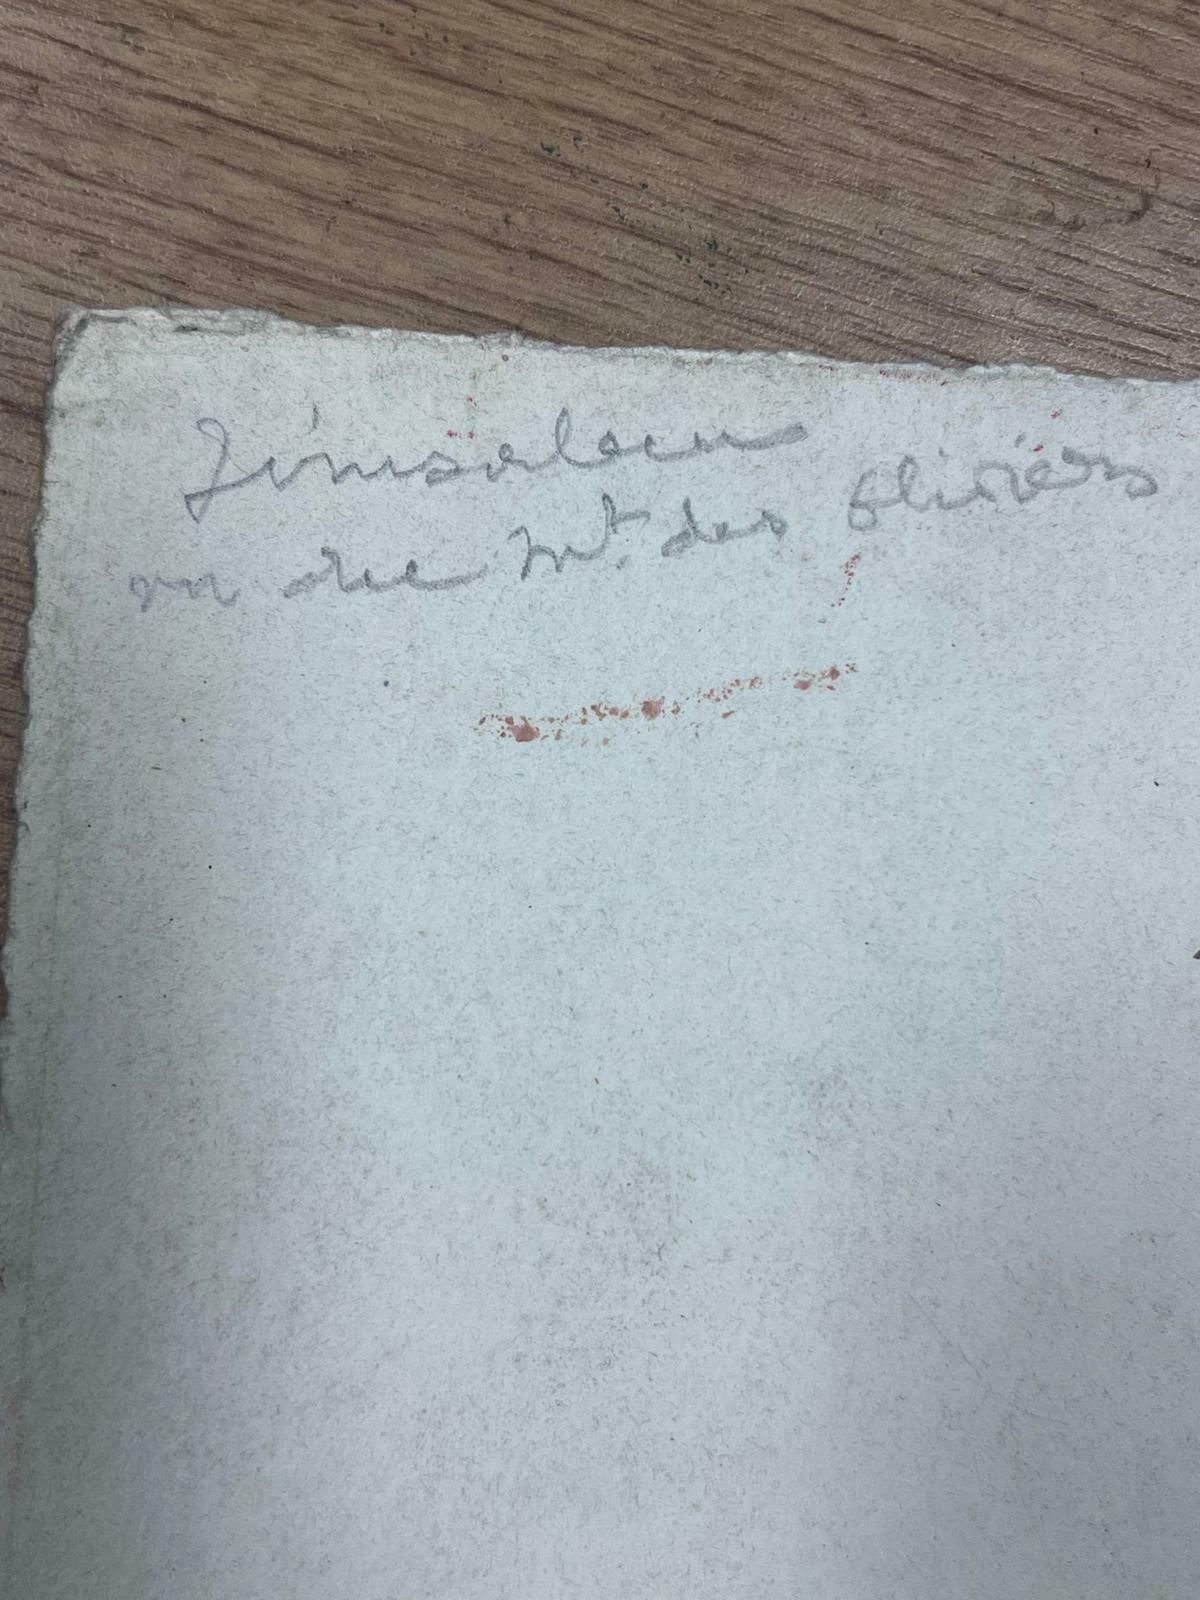 Jérusalem
vu du Mt. des Oliviers